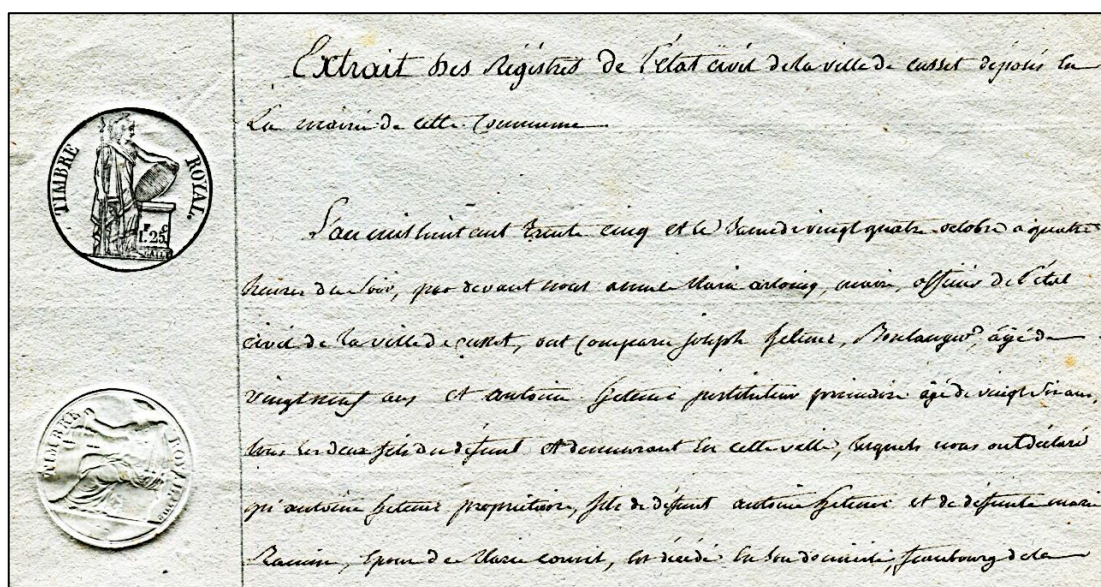 TIMBRE ROYAL
1. 25
Extrait des Régistres de l'état civil de la ville de cusset déposés en
La mairie de cette Commune
L'an mil huit cent trente cinq et le Samedi vingt quatre octobre à quatre
heures du Soir, par devant nous Marie mairie, officier de l'état
civil de la ville de cusset, ont Comparu joseph Boulanger, âgé de
vingt neuf ans et antoine instituteur primaire âgé de vingt Six ans,
tous les deux fils du défunt et demeurant en cette ville, lesquels nous ont déclaré
qu'antoine propriétaire, fils de défunt antoine et de défunte marie
Epoux de Marie est décédé en Son domicile, fauxbourg de la
TIMBRE